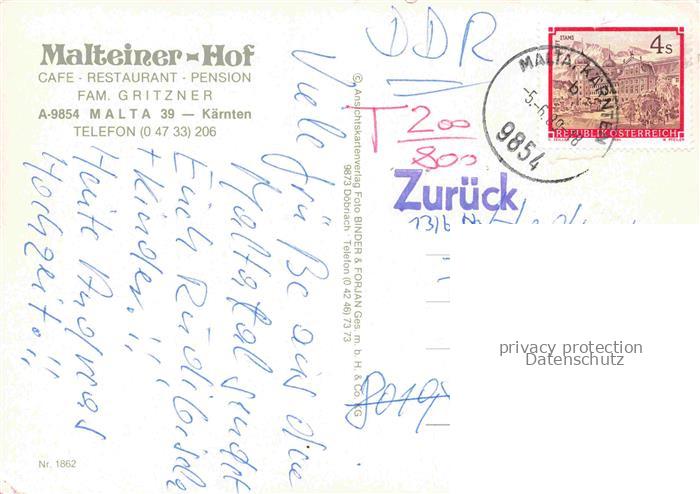 Malteiner-Hof
CAFE - RESTAURANT - PENSION
FAM. GRITZNER
A-9854 MALTA 39 — Kärnten
TELEFON (0 47 33) 206
Viele Grüße aus dem
Maltatal sendet
Euch Rudi
+ Kinder!!
Heute Andreas
Hochzeit!!
Nr. 1862
© Ansichtskartenverlag Foto BINDER & FORJAN Ges. m. b. H. & Co. KG
9873 Döbriach · Telefon (0 42 46) 73 73
DDR
T 200
800
Zurück
STAMS
4 S
REPUBLIK ÖSTERREICH
MALTA, KÄRNTEN
9854
8019
privacy protection
Datenschutz